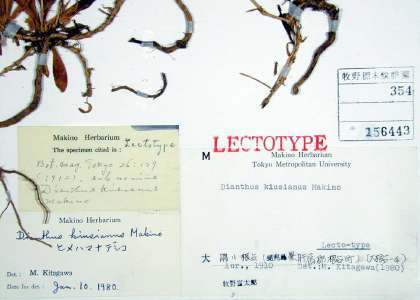 Makino Herbarium
The specimen cited in : Lectotype
Bot. Mag. Tokyo 26: 129
(1912), sub nomine
Dianthus kiusianus
Makino
Makino Herbarium
Dianthus kiusianus Makino
ヒメハマナデシコ
Det : M. Kitagawa
Date for det : Jan. 10. 1980.
354
156443
LECTOTYPE
M
Makino Herbarium
Tokyo Metropolitan University
Dianthus kiusianus Makino
Lecto-type
大隅
1910 Det. M. Kitagawa(1980)
牧野富太郎